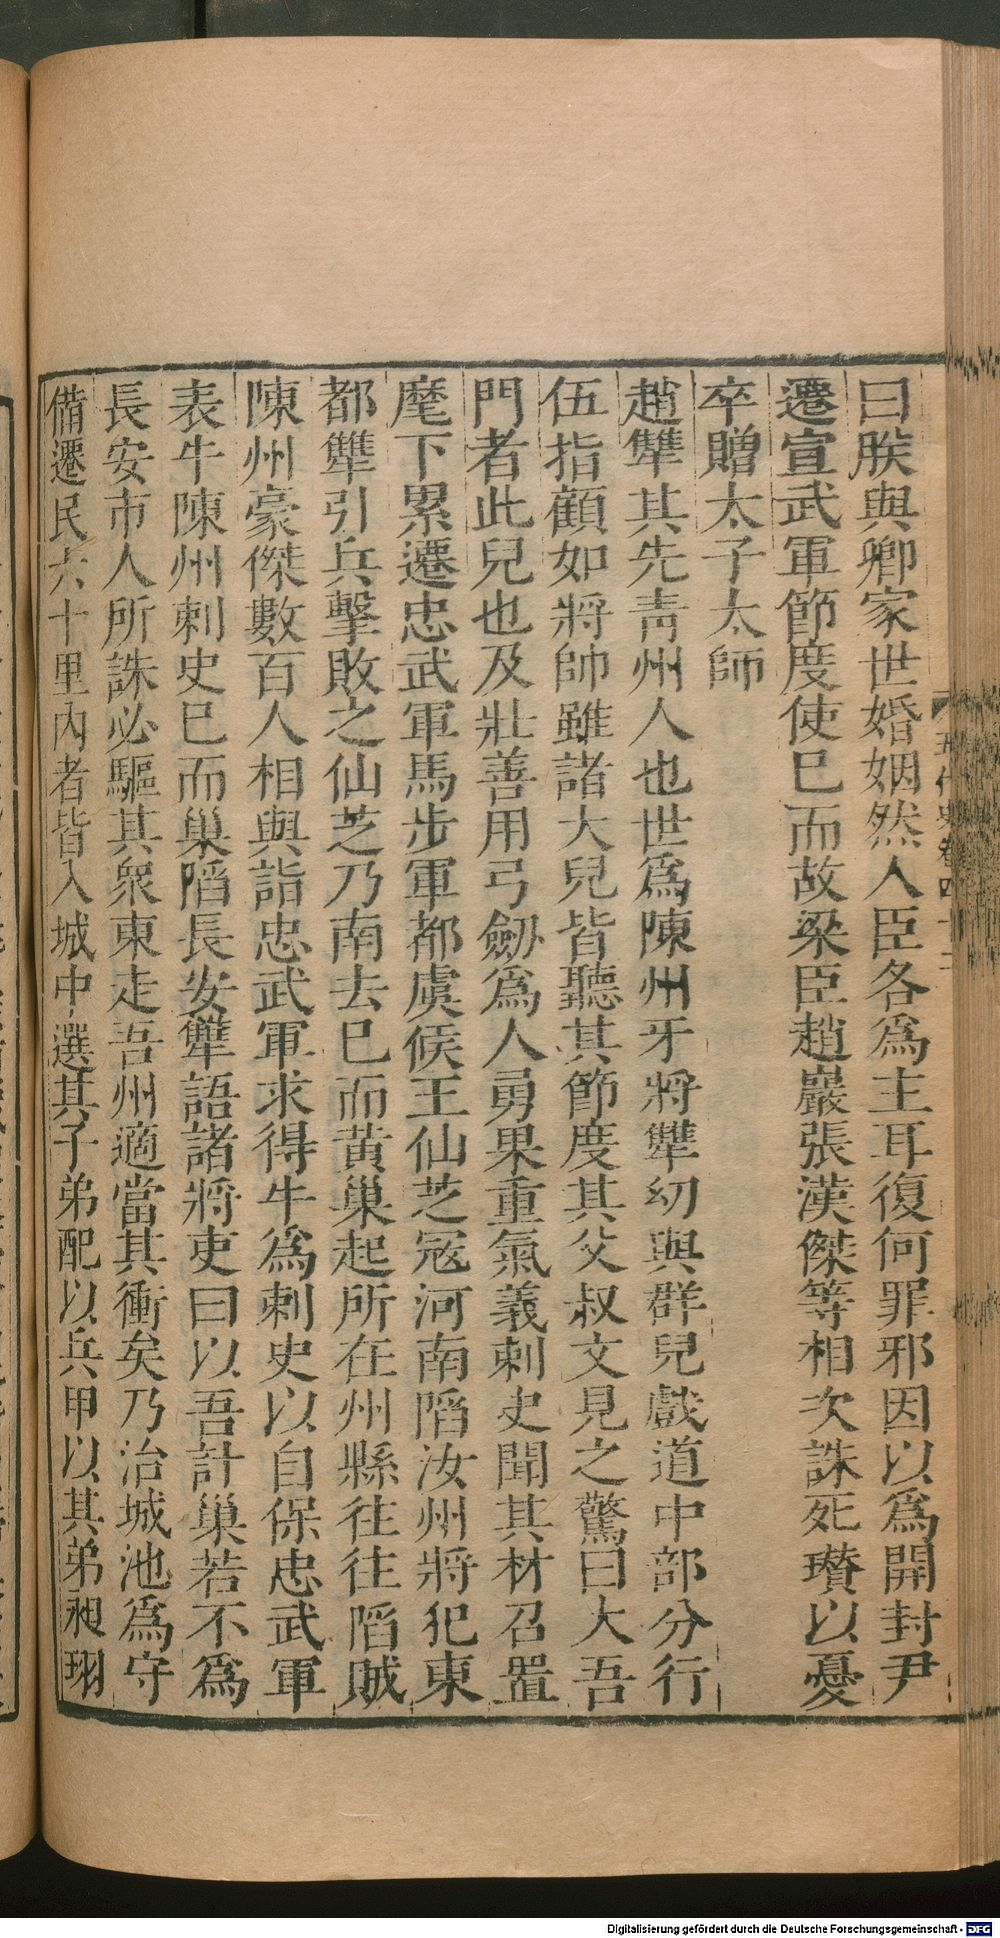 曰朕與卿家世婚姻然人臣各爲主耳復何罪邪因以爲開封尹
遷宣武軍節度使巳而故梁臣趙巖張漢傑等相次誅死瓚以憂
卒贈太子太師
趙犨其先靑州人也世爲陳州牙將犨幼與群兒戲道中部分行
伍指顧如將帥雖諸大兒皆聽其節度其父叔文見之驚曰大吾
門者此兒也及壯善用弓劒爲人勇果重氣義刺史聞其材召置
麾下累遷忠武軍馬步軍都虞候王仙芝宼河南䧟汝州將犯東
都犨引兵擊敗之仙芝乃南去巳而黃巢起所在州縣往往䧟賊
陳州豪傑數百人相與詣忠武軍求得牛爲刺史以自保忠武軍
表牛陳州刺史巳而巢䧟長安犨語諸將吏曰以吾計巢若不爲
長安市人所誅必驅其衆東走吾州適當其衝矣乃治城池爲守
備遷民六十里內者皆入城中選其子弟配以兵甲以其弟昶珝
五代史卷四十二
Digitalisierung gefördert durch die Deutsche Forschungsgemeinschaft - DFG